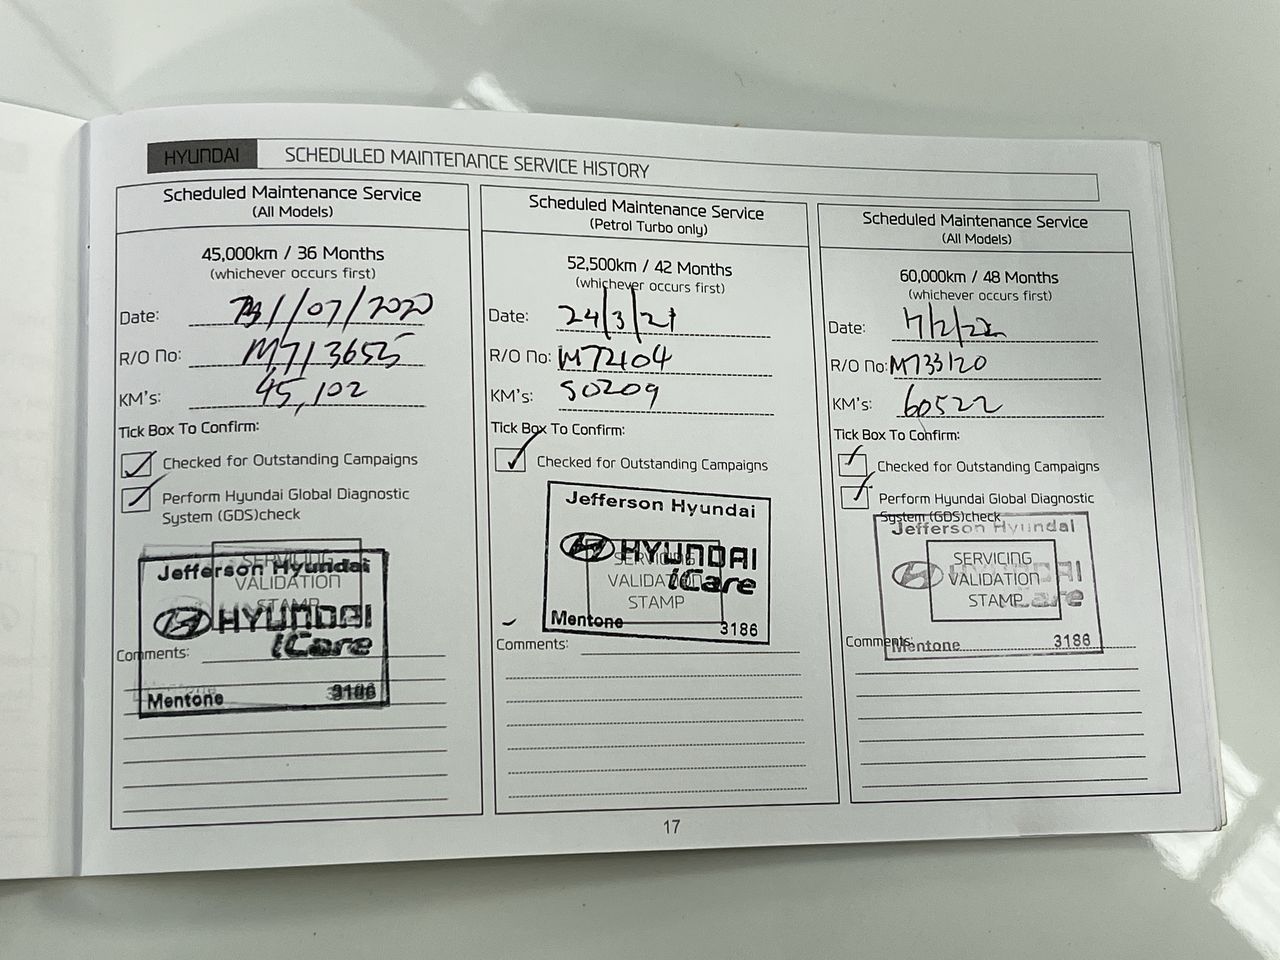 HYUNDAI SCHEDULED MAINTENANCE SERVICE HISTORY
Scheduled Maintenance Service
(All Models)
45,000km / 36 Months
(whichever occurs first)
Date: /07/2020
R/O No: M7136525
KM's: 45,102
Tick Box To Confirm:
Checked for Outstanding Campaigns
Perform Hyundai Global Diagnostic
System (GDS)check
SERVICING
VALIDATION
STAMP
Jefferson Hyundai
HYUNDAI
iCare
Mentone 3186
Comments:
Scheduled Maintenance Service
(Petrol Turbo only)
52,500km / 42 Months
(whichever occurs first)
Date: 24/3/21
R/O No: M72104
KM's: 50209
Tick Box To Confirm:
Checked for Outstanding Campaigns
Jefferson Hyundai
HYUNDAI
iCare
SERVICING
VALIDATION
STAMP
Mentone 3186
Comments:
Scheduled Maintenance Service
(All Models)
60,000km / 48 Months
(whichever occurs first)
Date: 7/2/22
R/O No: M733120
KM's: 60522
Tick Box To Confirm:
Checked for Outstanding Campaigns
Perform Hyundai Global Diagnostic
System (GDS)check
Jefferson Hyundai
HYUNDAI
iCare
SERVICING
VALIDATION
STAMP
Mentone 3186
Comments:
17